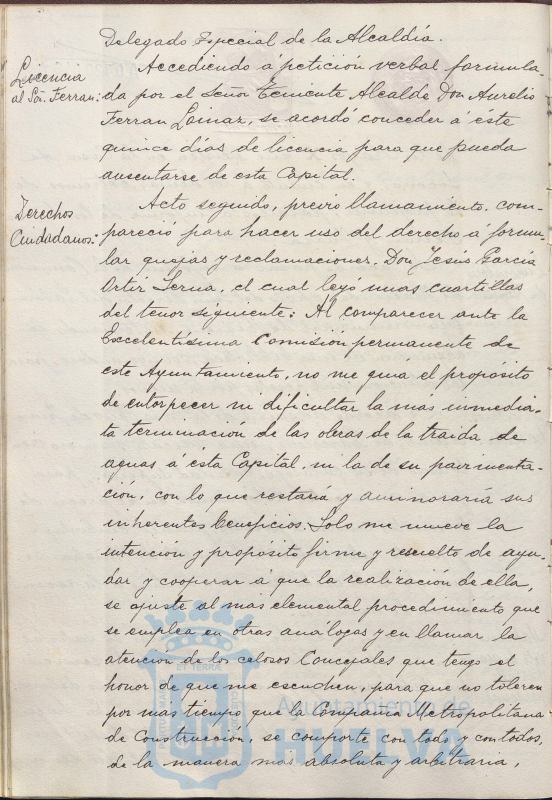 Delegado Especial de la Alcaldía.
Licencia
al Sr. Ferran:
Accediendo a petición verbal formula-
da por el Señor Teniente Alcalde Don Aurelio
Ferran Loinaz, se acordó conceder á este
quince días de licencia para que pueda
ausentarse de esta Capital.
Derechos
Ciudadanos:
Acto seguido, previo llamamiento, com-
pareció para hacer uso del derecho á formu-
lar quejas y reclamaciones, Don Jesús García
Ortiz Serna, el cual leyó unas cuartillas
del tenor siguiente: Al comparecer ante la
Excelentísima Comisión permanente de
este Ayuntamiento, no me guía el propósito
de entorpecer ni dificultar la más inmedia-
ta terminación de las obras de la traida de
aguas á esta Capital, ni la de su pavimenta-
ción, con lo que restaría y aminoraría sus
inherentes beneficios. Solo me mueve la
intención y propósito firme y resuelto de ayu-
dar y cooperar á que la realización de ella,
se ajuste al más elemental procedimiento que
se emplea en otras análogas y en llamar la
atención de los celosos Concejales que tengo el
honor de que me escuchen, para que no toleren
por mas tiempo que la Compañía Metropolitana
de Construcción, se comporte con todo y con todos,
de la manera mas absoluta y arbitraria,
Ayuntamiento de
HUELVA